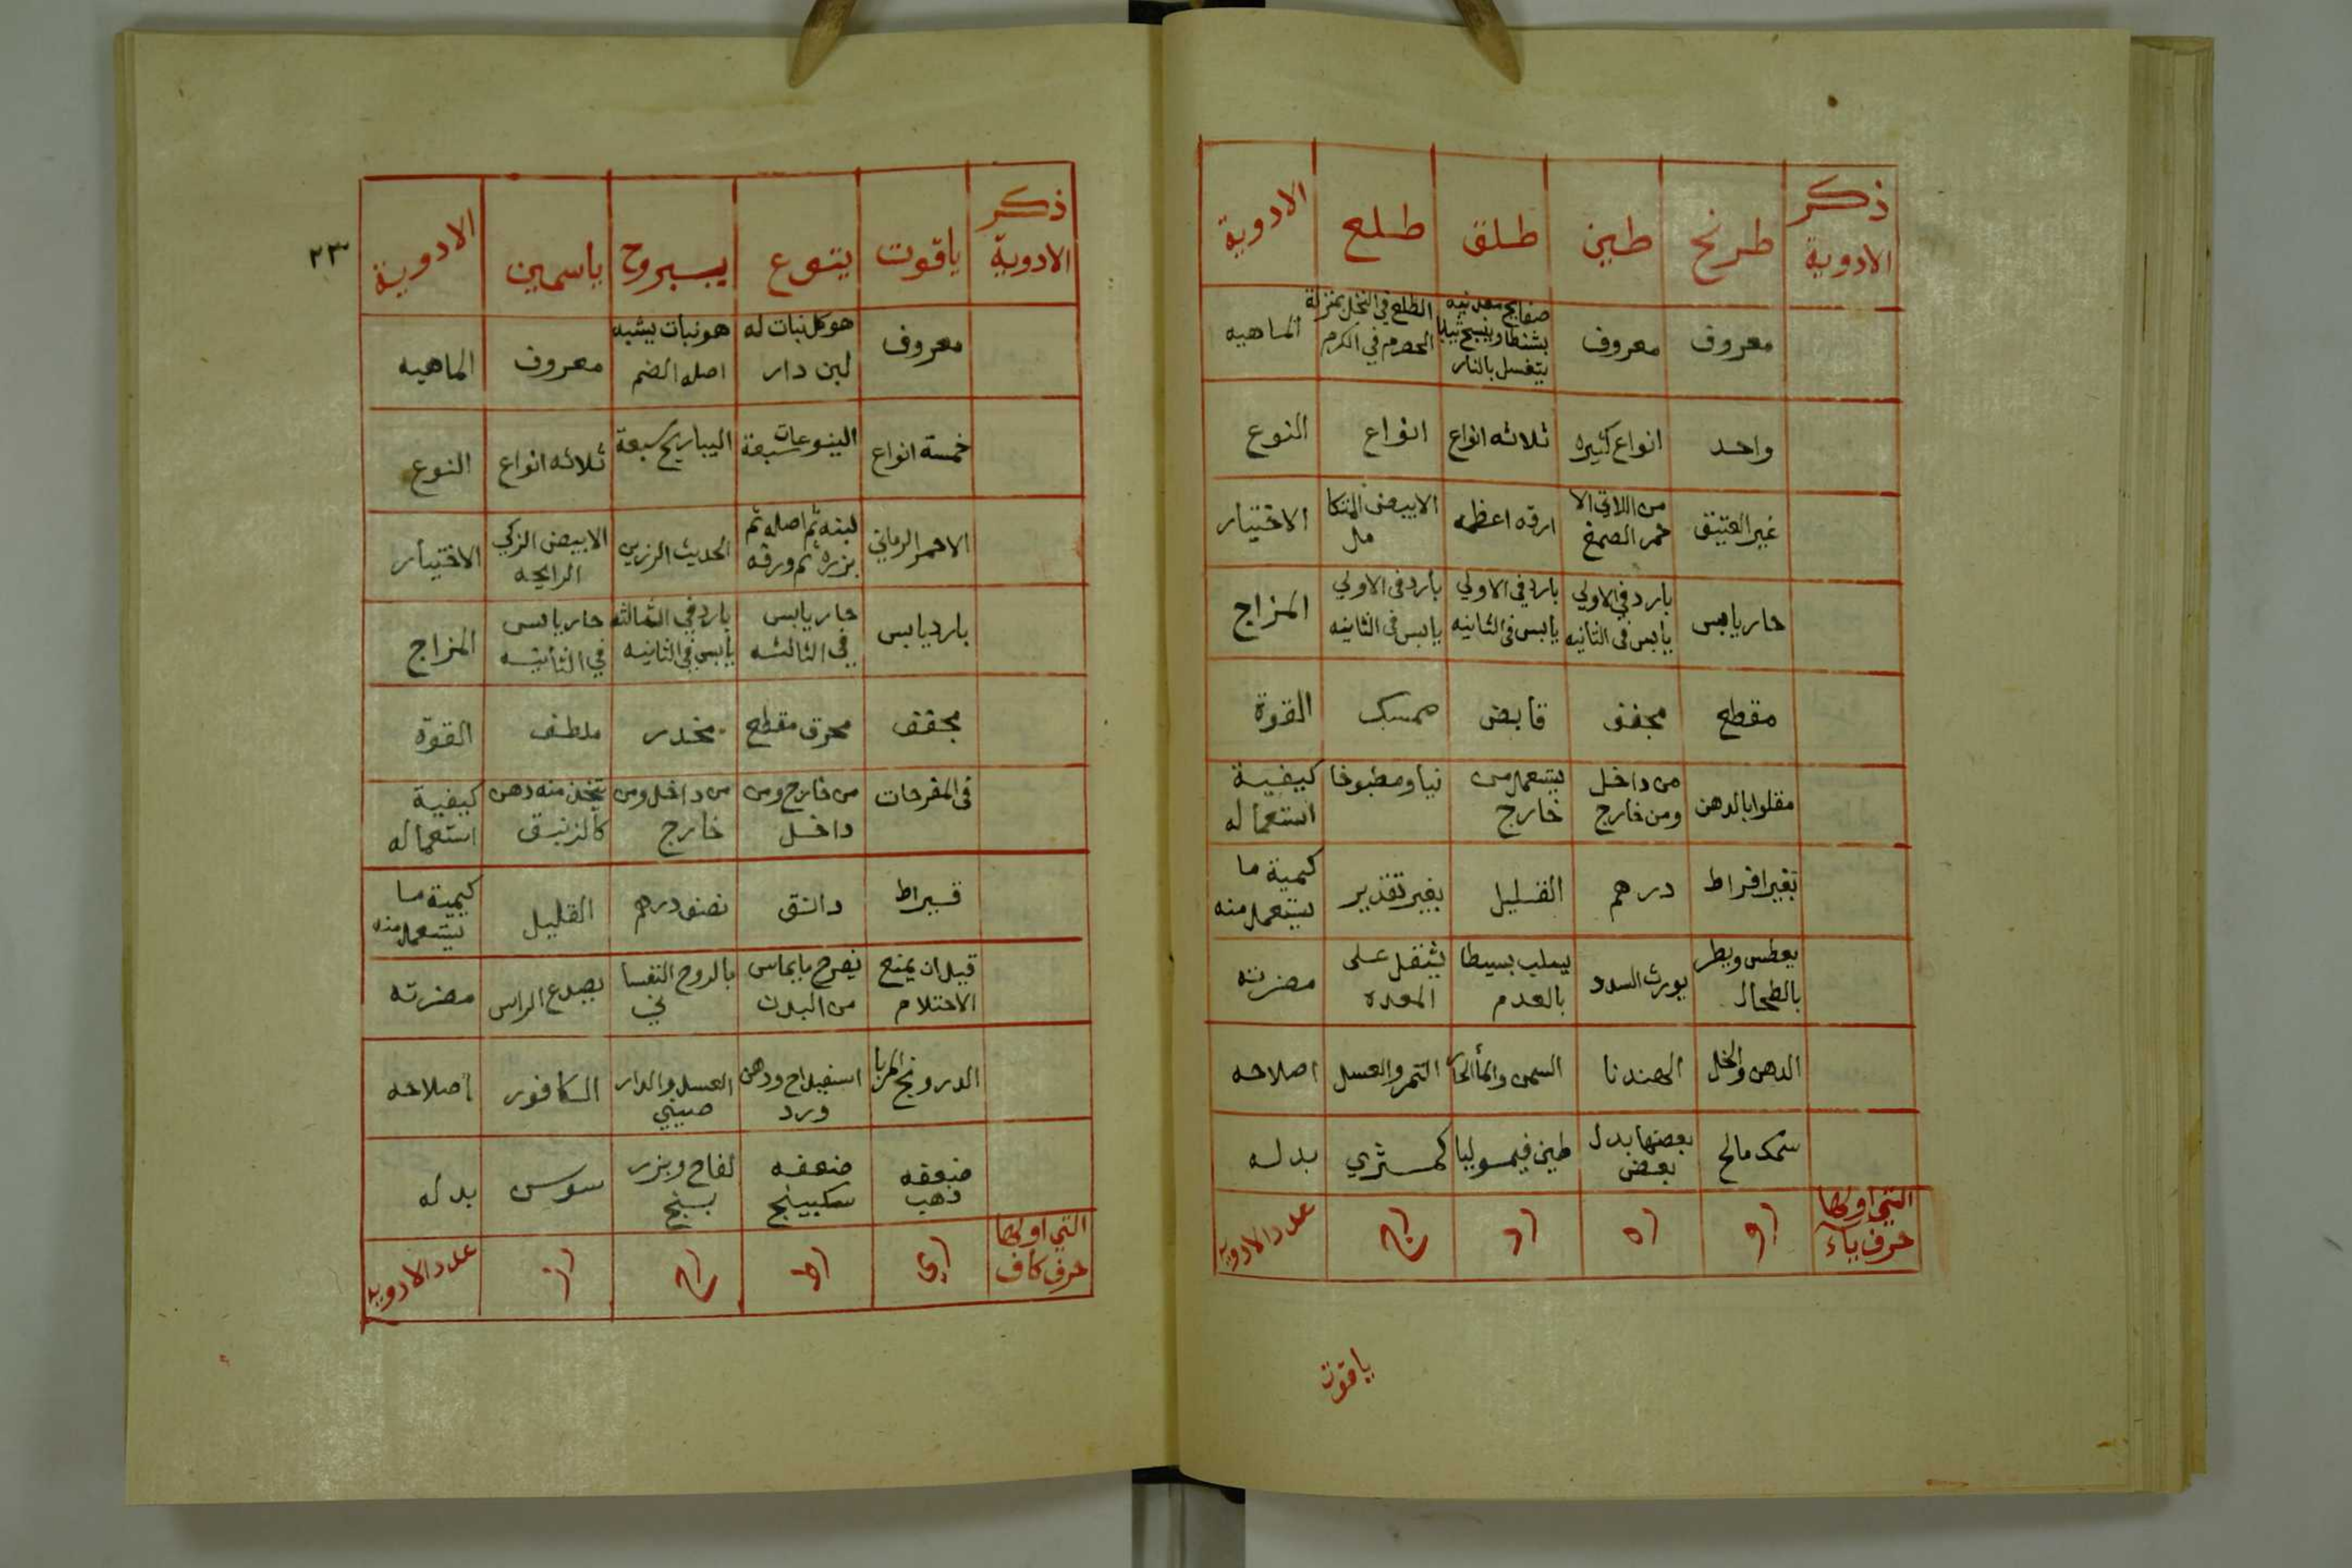 ذكر الادوية	طرنج	طين	طلق	طلع	الادوية
معروف	معروف	صفايح معدنيه	الطلع في النخل بمنزلة الحصرم في الكرم	الماهيه
واحد	انواع كثيره	ثلاثه انواع	انواع	النوع
غير العتيق	ارقه اعظمه	الابيض المتكا مل	الاختيار
حار يابس	بارد في الاولي يابس في الثانيه	بارد في الاولي يابس في الثانيه	بارد في الاولي يابس في الثانيه	المزاج
مقطع	مجفف	قابض	ممسك	القوة
مقلوا بالدهن	من داخل ومن خارج	يستعمل من خارج	نيا ومطبوخا	كيفية استعماله
بغير افراط	درهم	القليل	بغير تقدير	كمية ما يستعمل منه
يعطس ويضر بالطحال	يورث السدد	يثقل على المعده	مضرته
الدهن والخل	الهندبا	السمن والمأ الحار	التمر والعسل	اصلاحه
سمك مالح	بعضها بدل بعض	طين فيموليا	كمثري	بدله
التي اولها حرف ياء	عدد الادويه
ياقوت
٢٣
ذكر الادوية	ياقوت	يتوع	يبروح	ياسمين	الادوية
معروف	هو كل نبات له لبن دار	هو نبات يشبه اصله الصنم	معروف	الماهيه
خمسة انواع	اليتوعات سبعة	اليباريح سبعة	ثلاثه انواع	النوع
الاحمر الرماني	لبنه ثم اصله ثم بزره ثم ورقه	الحديث الرزين	الابيض الزكي الرايحه	الاختيار
بارد يابس	حار يابس في الثالثه	بارد في الثالثه يابس في الثانيه	حار يابس في الثانيه	المزاج
مجفف	محرق مقطع	مخدر	ملطف	القوة
في المفرحات	من خارج ومن داخل	من داخل ومن خارج	يتخذ منه دهن كالزنبق	كيفية استعماله
قيراط	دانق	نصف درهم	القليل	كمية ما يستعمل منه
قيل ان يمنع الاحتلام	يقرح ما يماس من البدن	بالروح النفسا ني	يصدع الراس	مضرته
الدرونج المربا	اسفيداج ودهن ورد	العسل والدار صيني	الكافور	اصلاحه
ضعفه ذهب	ضعفه سكبينج	لفاح وبزر بنج	سوسن	بدله
التي اولها حرف كاف	عدد الادويه